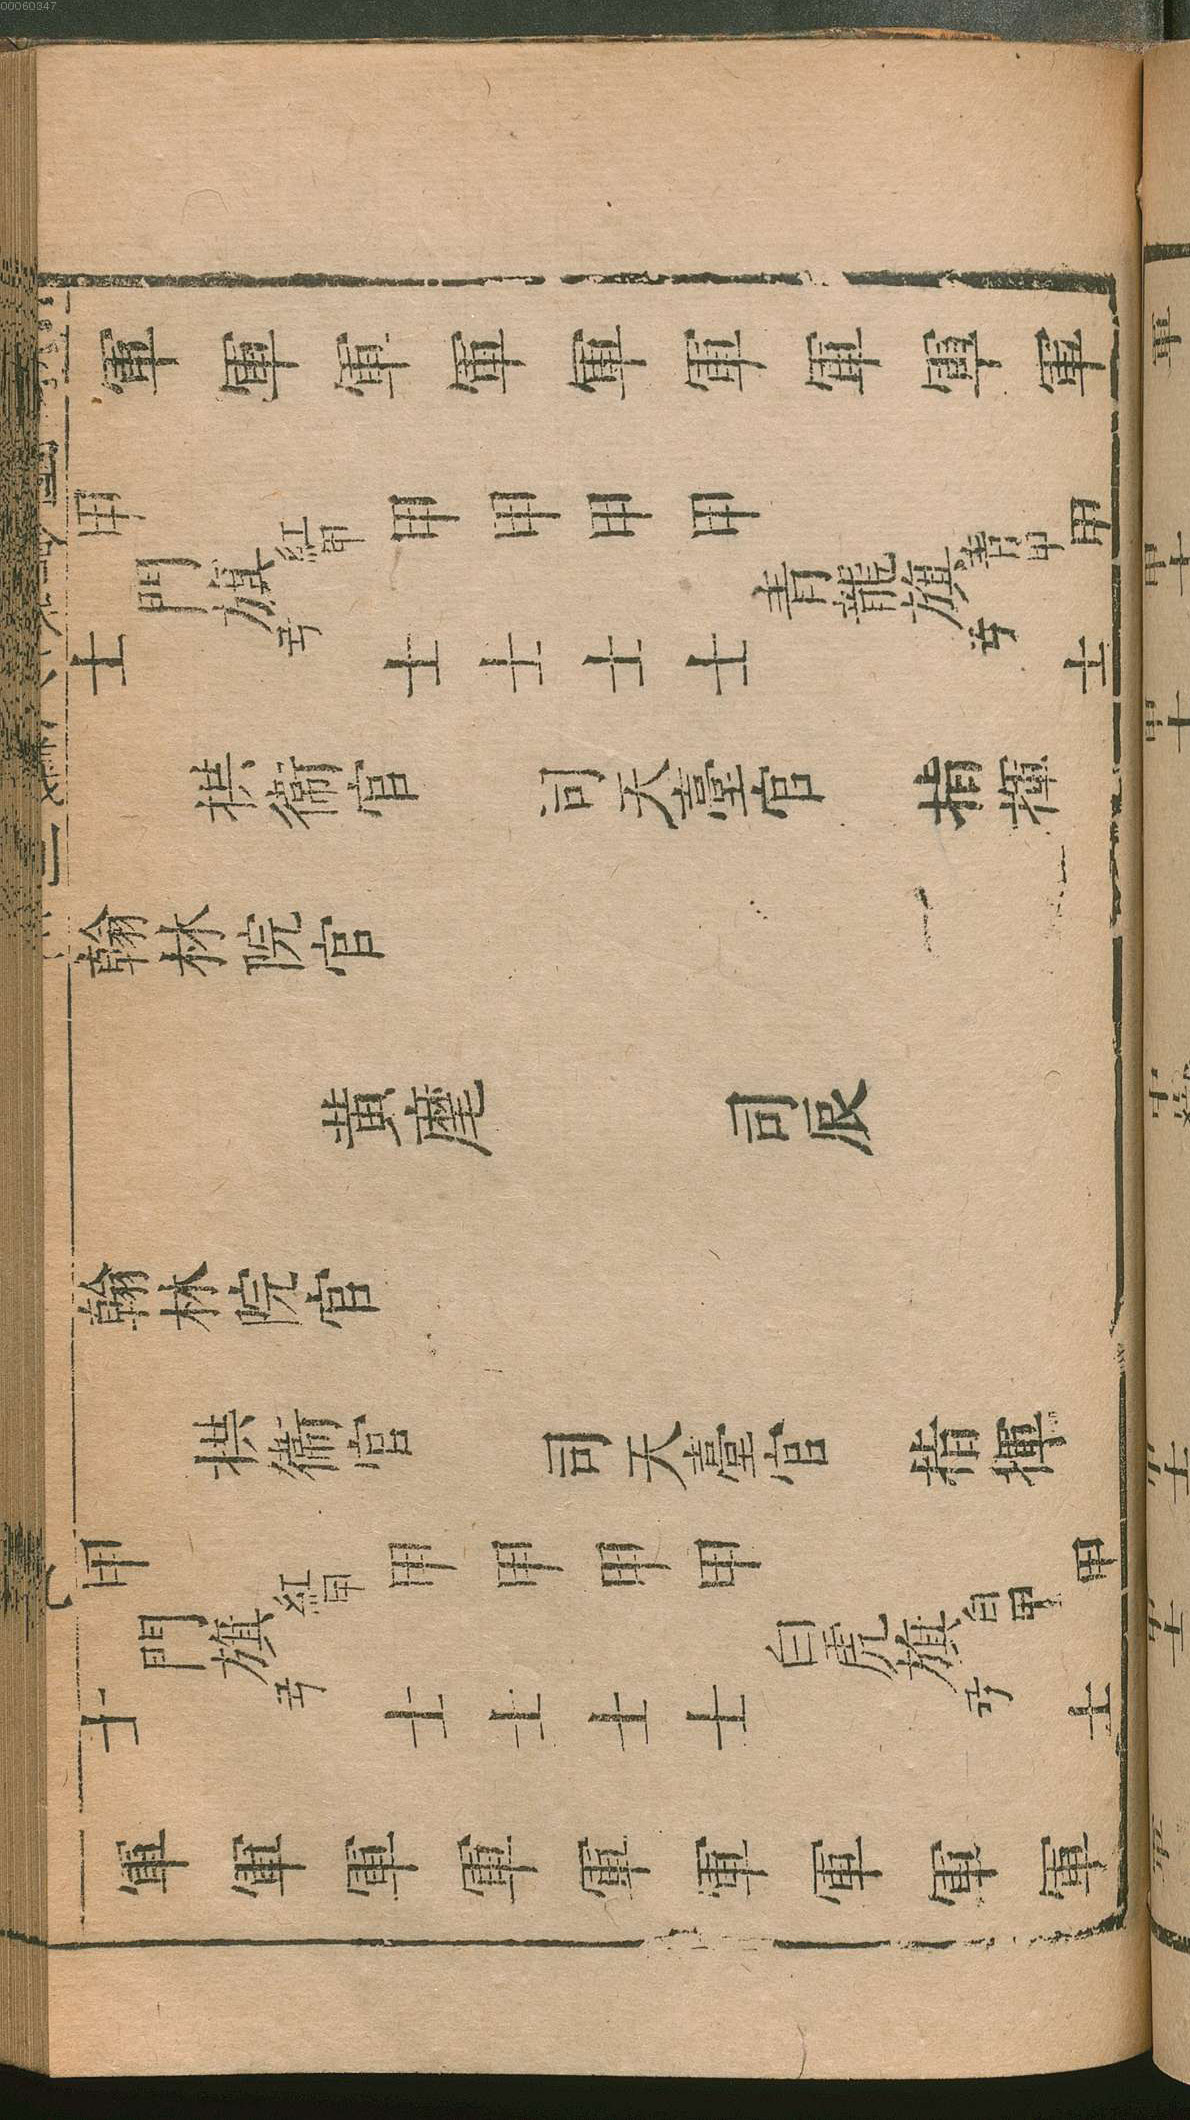 00060347
軍 軍 軍 軍 軍 軍 軍 軍 軍
甲士 門旗 紅甲 弓 甲士 甲士 甲士 甲士 青龍旗 青甲 弓 甲士
拱衛官 司天臺官 指揮
翰林院官
黃麾 司辰
翰林院官
拱衛官 司天臺官 指揮
甲士 門旗 紅甲 弓 甲士 甲士 甲士 甲士 白虎旗 白甲 弓 甲士
軍 軍 軍 軍 軍 軍 軍 軍 軍